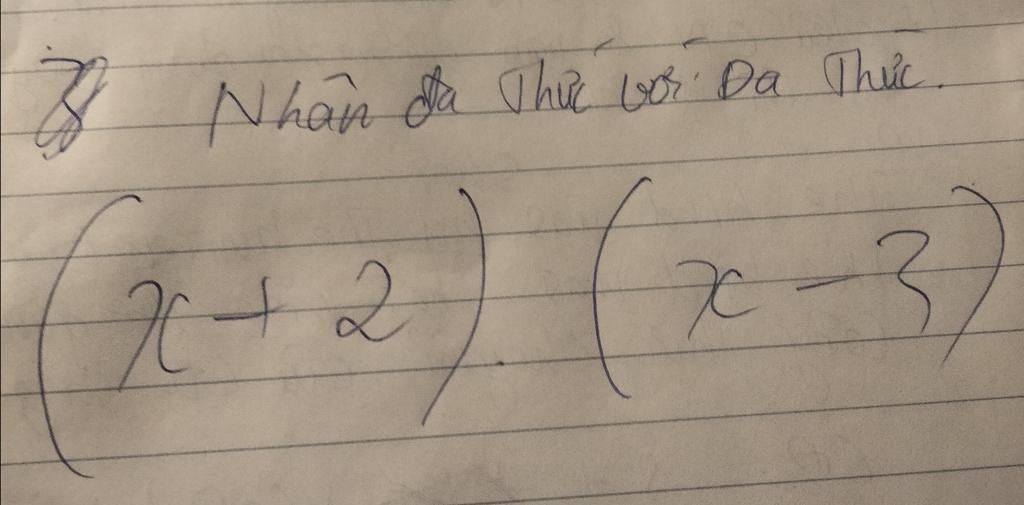 Nhân đa Thức với Đa Thức.
(x + 2) . (x - 3)